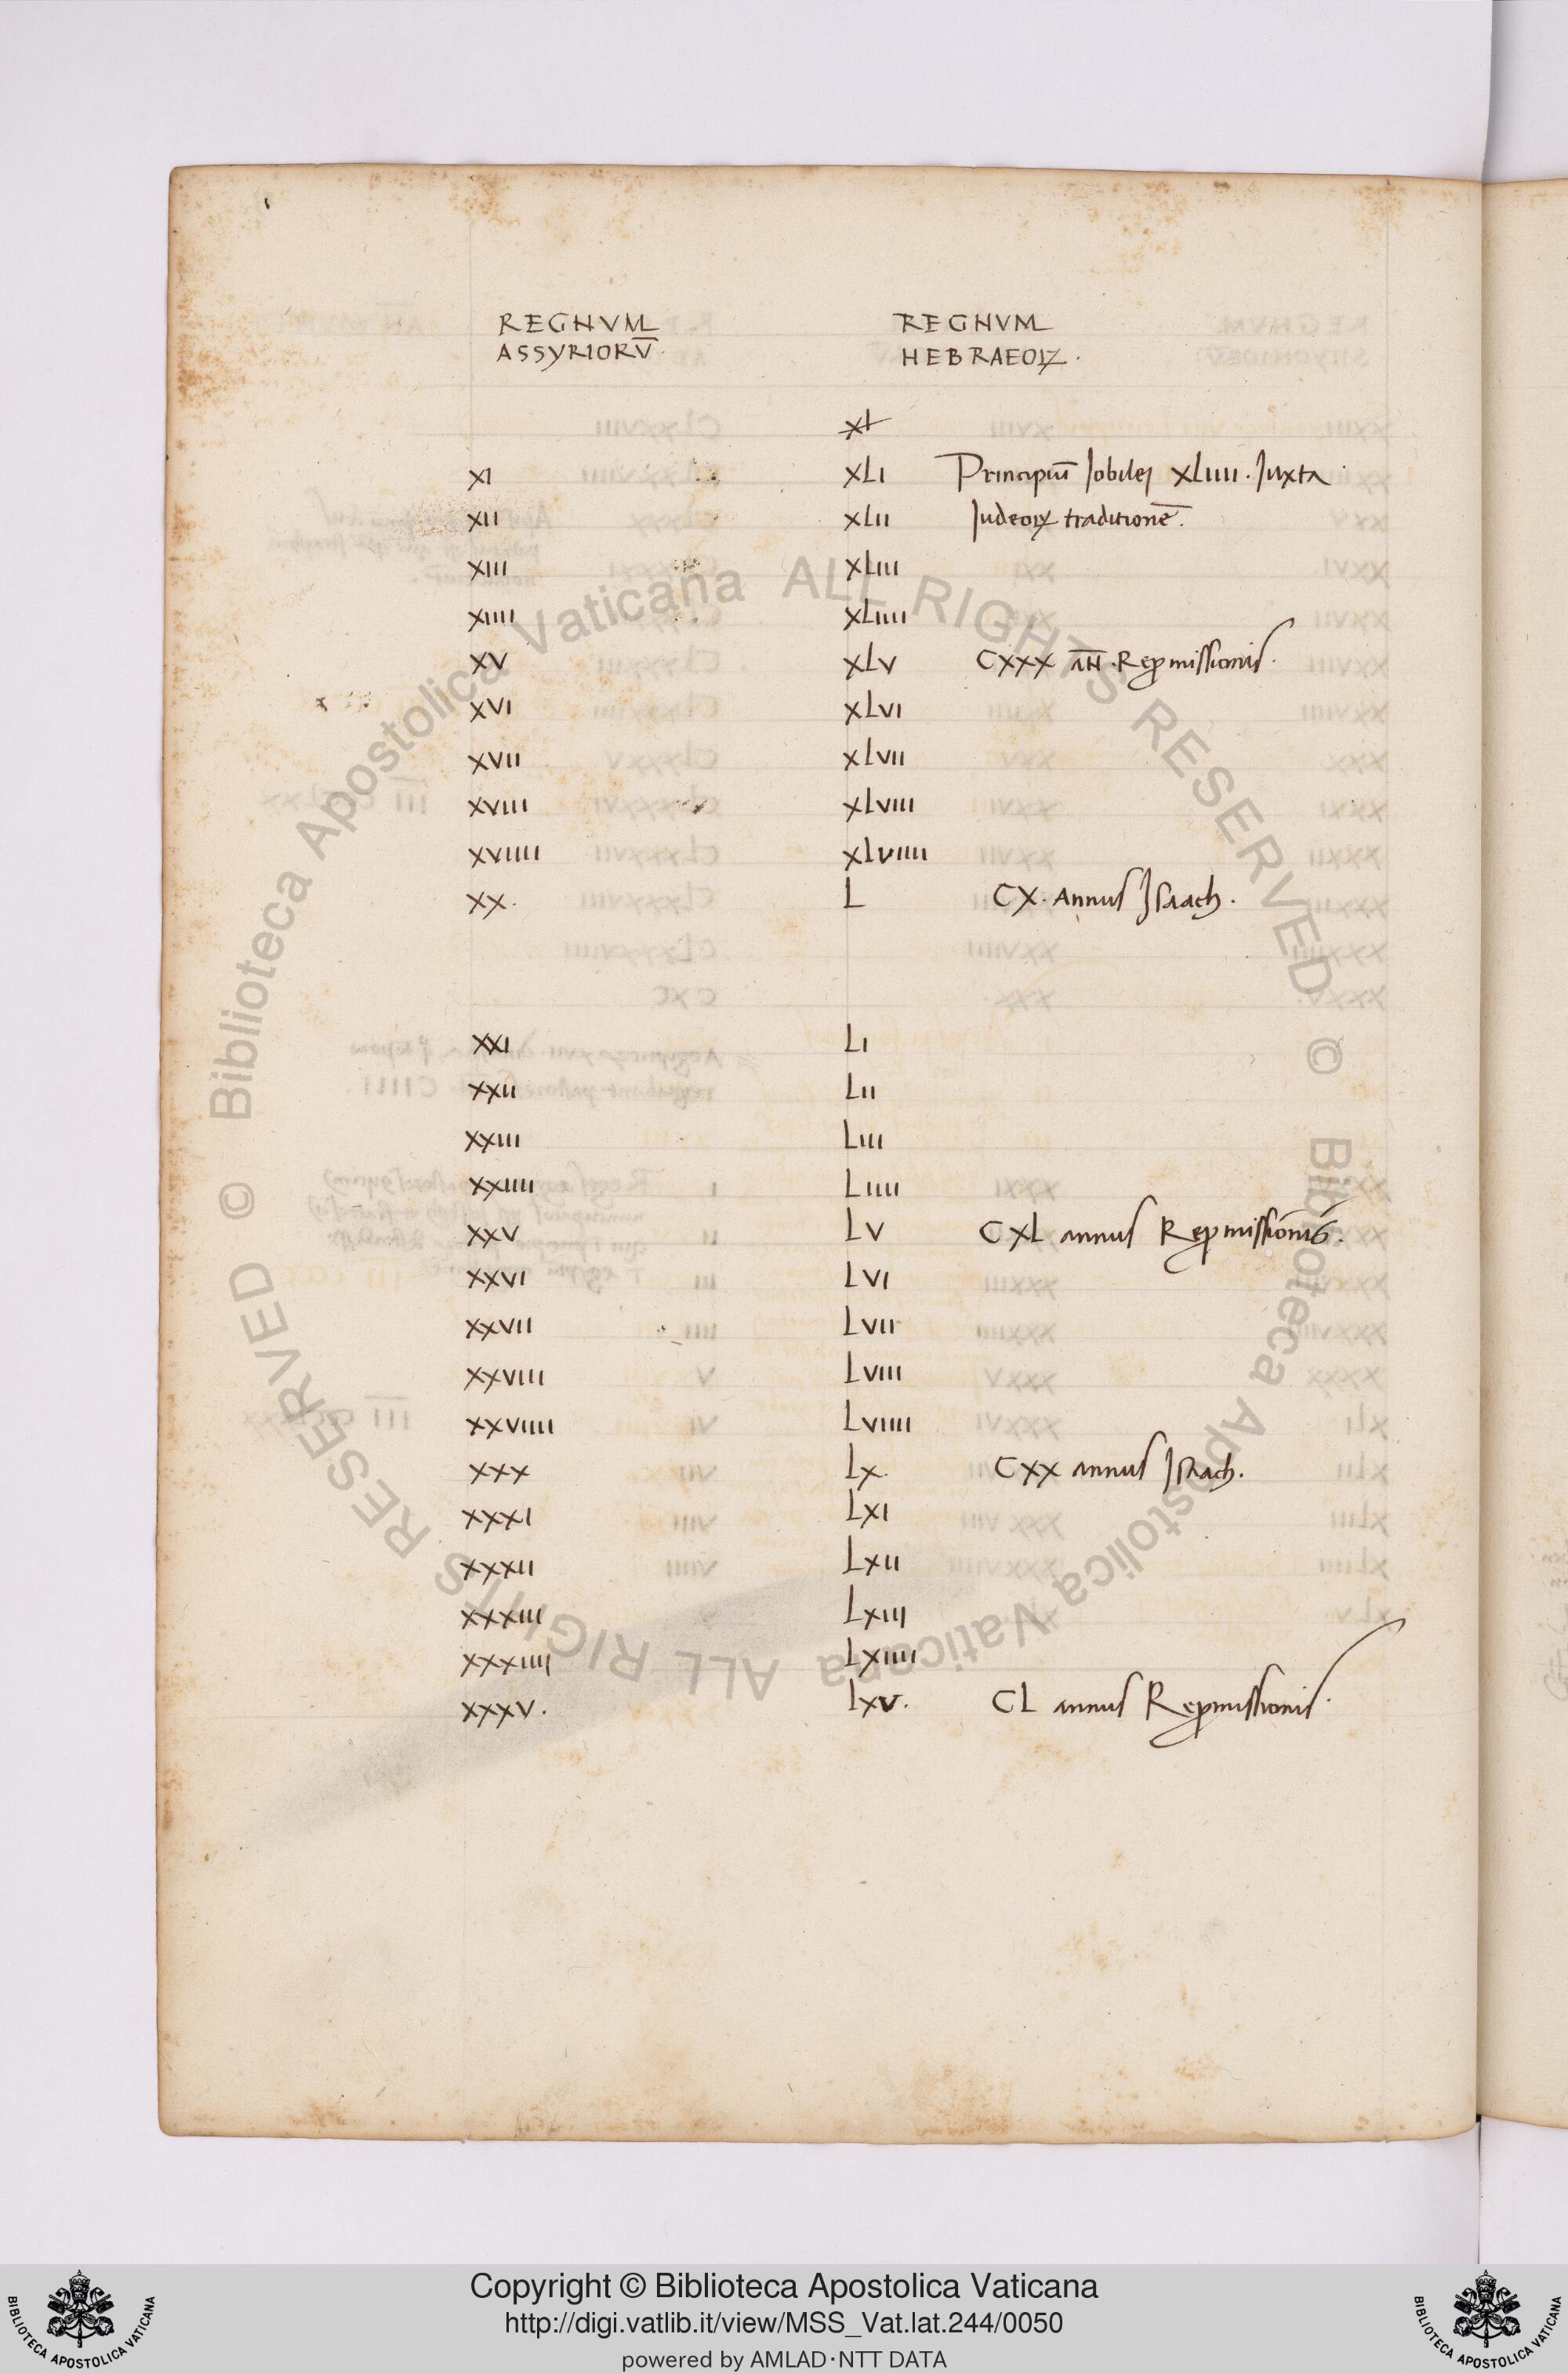 REGNVM REGNVM
ASSYRIORV̅. HEBRAEOꝜ.
XL
XI XLI Principiū Iobilei XLIIII. Iuxta
XII XLII Iudeoꝝ traditionē.
XIII XLIII
XIIII XLIIII
XV XLV CXXX AN̅. Reꝓmissionis.
XVI XLVI
XVII XLVII
XVIII XLVIII
XVIIII XLVIIII
XX. L CX. Annus Isaach.
XXI LI
XXII LII
XXIII LIII
XXIIII LIIII
XXV LV CXL annus Reꝓmissionis.
XXVI LVI
XXVII LVII
XXVIII LVIII
XXVIIII LVIIII
XXX LX. CXX annus Isaach.
XXXI LXI
XXXII LXII
XXXIII LXIII
XXXIIII LXIIII
XXXV. LXV. CL annus Reꝓmissionis.
© Biblioteca Apostolica Vaticana ALL RIGHTS RESERVED
© Biblioteca Apostolica Vaticana ALL RIGHTS RESERVED
Copyright © Biblioteca Apostolica Vaticana
http://digi.vatlib.it/view/MSS_Vat.lat.244/0050
powered by AMLAD·NTT DATA
BIBLIOTECA APOSTOLICA VATICANA
BIBLIOTECA APOSTOLICA VATICANA